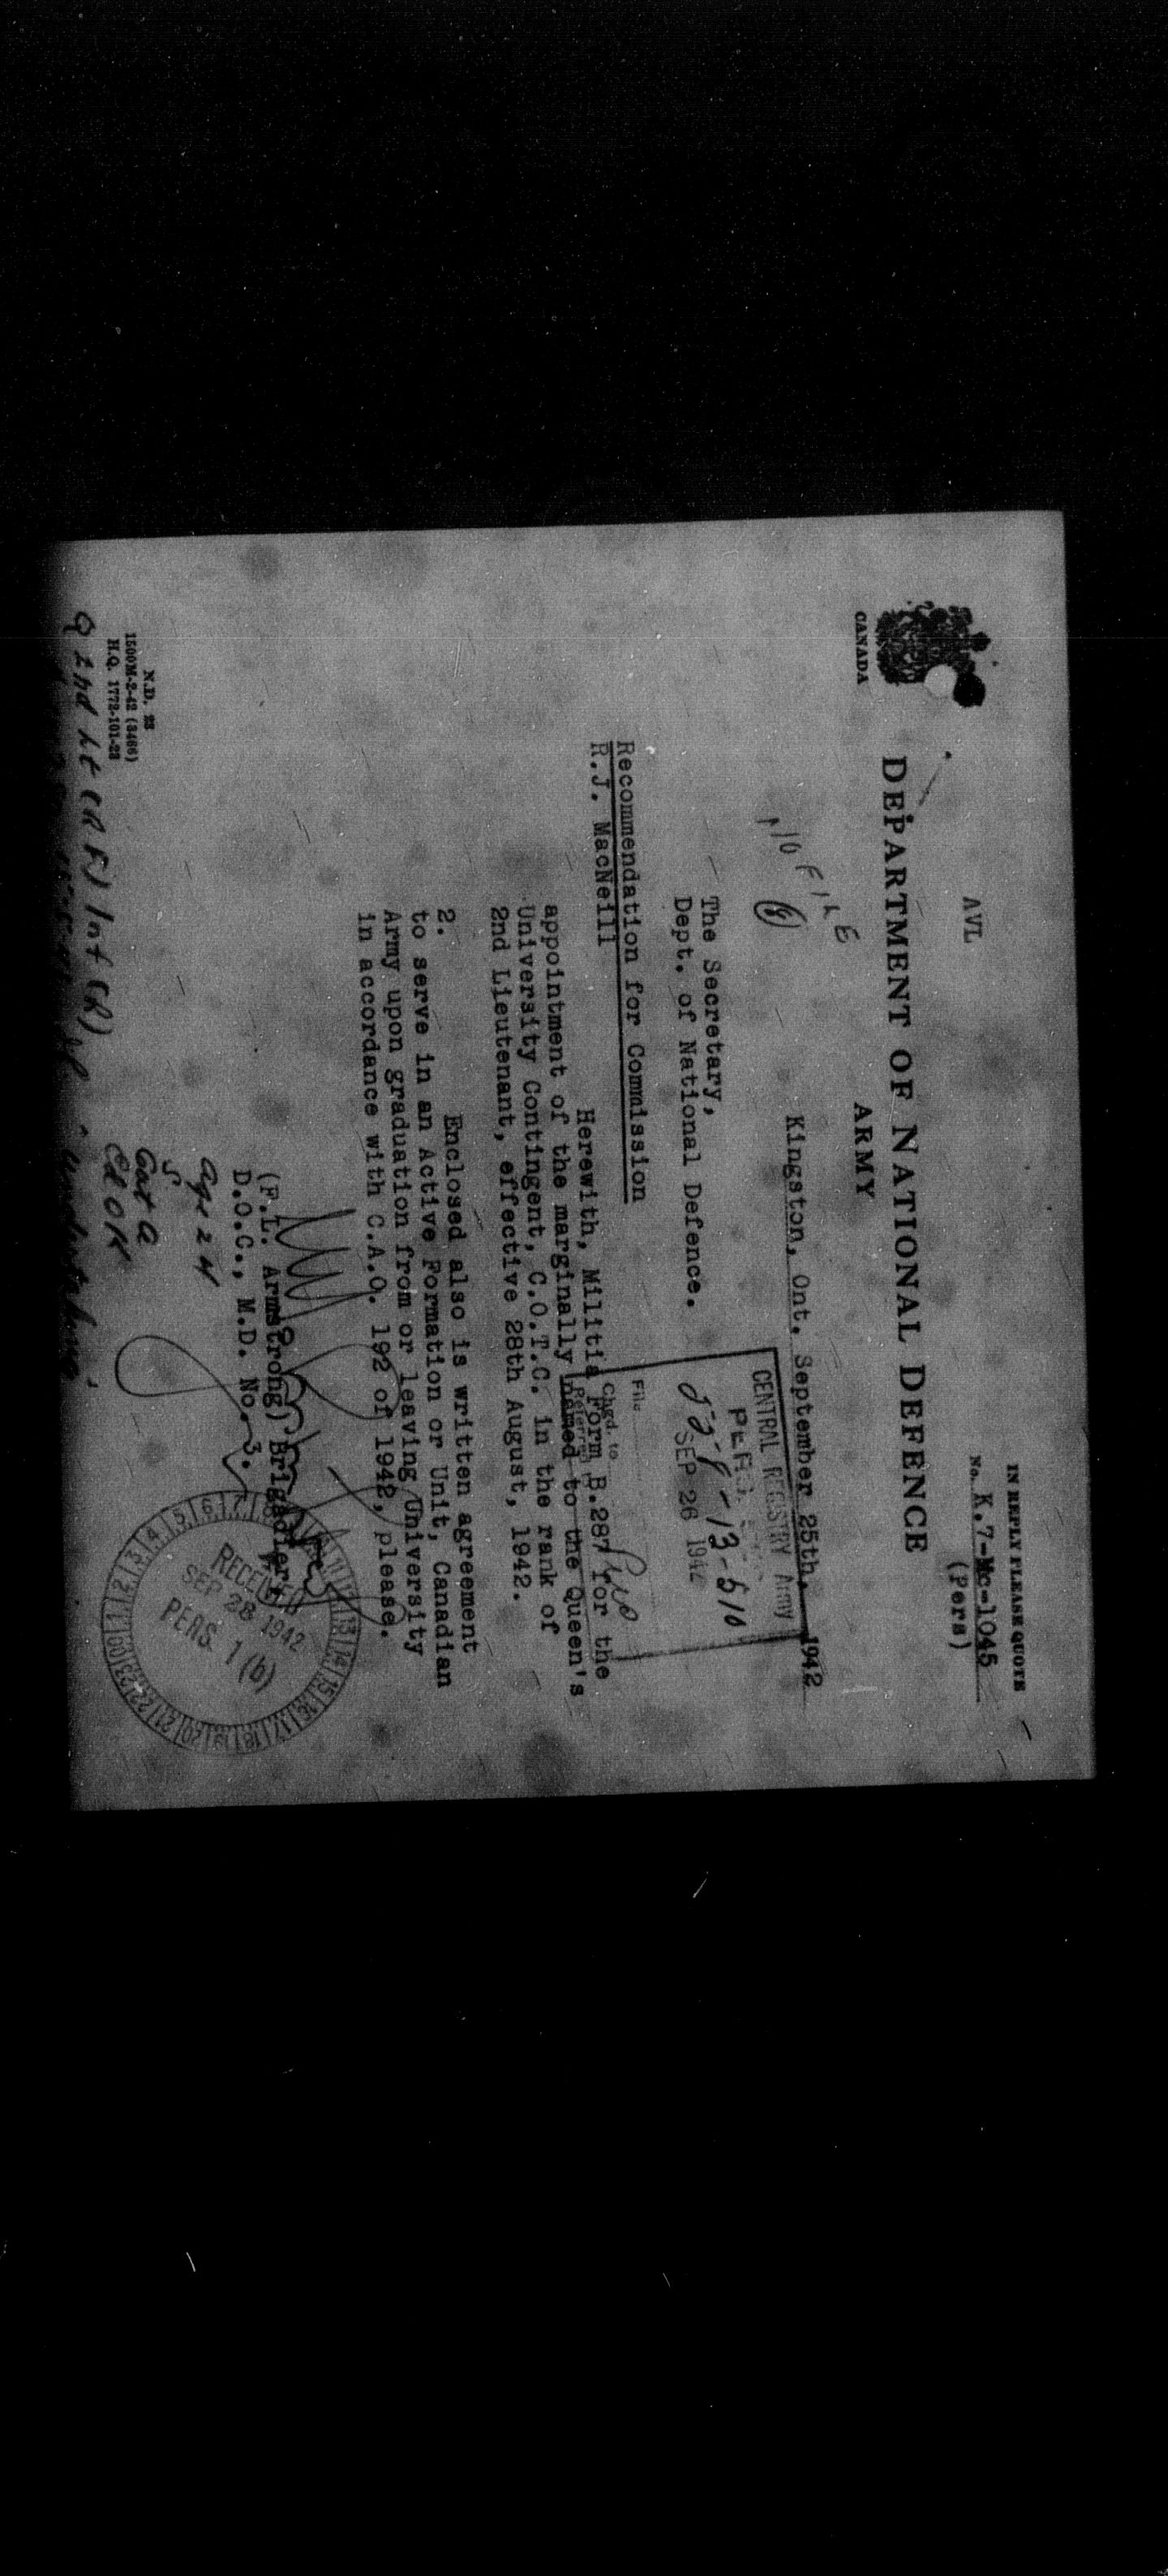 AVL
IN REPLY PLEASE QUOTE
No. K.7-Mc-1045
(Pers)
DEPARTMENT OF NATIONAL DEFENCE
ARMY
CANADA
Kingston, Ont. September 25th, 1942
NO FILE
CENTRAL REGISTRY Army
SEP 26 1942
File
Chgd. to
The Secretary,
Dept. of National Defence.
Recommendation for Commission
R.J. MacNeill
Herewith, Militia Form B.287 for the
appointment of the marginally named to the Queen's
University Contingent, C.O.T.C. in the rank of
2nd Lieutenant, effective 28th August, 1942.
2. Enclosed also is written agreement
to serve in an Active Formation or Unit, Canadian
Army upon graduation from or leaving University
in accordance with C.A.O. 192 of 1942, please.
(F.L. Armstrong) Brigadier,
D.O.C., M.D. No. 3.
RECEIVED
SEP 28 1942
PERS. 1 (b)
Age 24
S
Cat A
N.D. 23
1500M-2-42 (3466)
H.Q. 1772-101-23
Q 2nd Lt (RF) Inf (R)